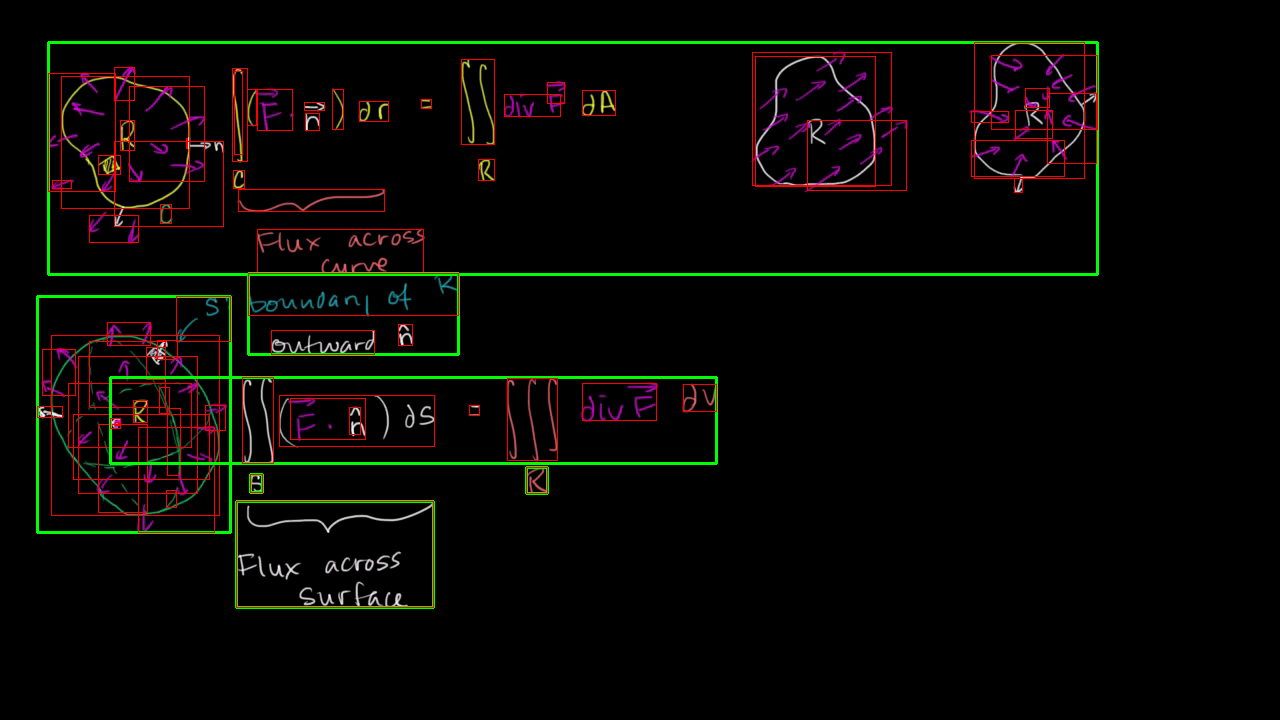 R
n
C
∫ ( F⃗ · n̂ ) dr = ∬ div F⃗ dA
C R
R
R
Flux across
curve
S
boundary of R
outward n̂
R
∬ ( F⃗ · n̂ ) dS = ∭ div F⃗ dV
S R
Flux across
surface